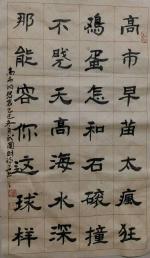 高市早苗太疯狂
鸡蛋怎和石磙撞
不晓天高海水深
那能容你这球样